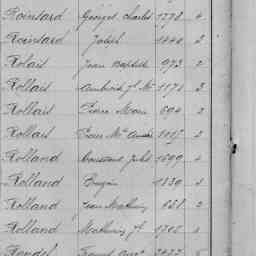 Roinsard Georges Charles 1778 4
Roinsard Joseph 1440 2
Rollais Jean Baptiste 973 2
Rollais Ambroise 1171 3
Rollais Pierre Marie 694 2
Rollais Pierre Me 2
Rolland Constant Jules 1699 4
Rolland Eugène 1839 4
Rolland Jean Mathurin 2
Rolland Mathurin 4
Rondel